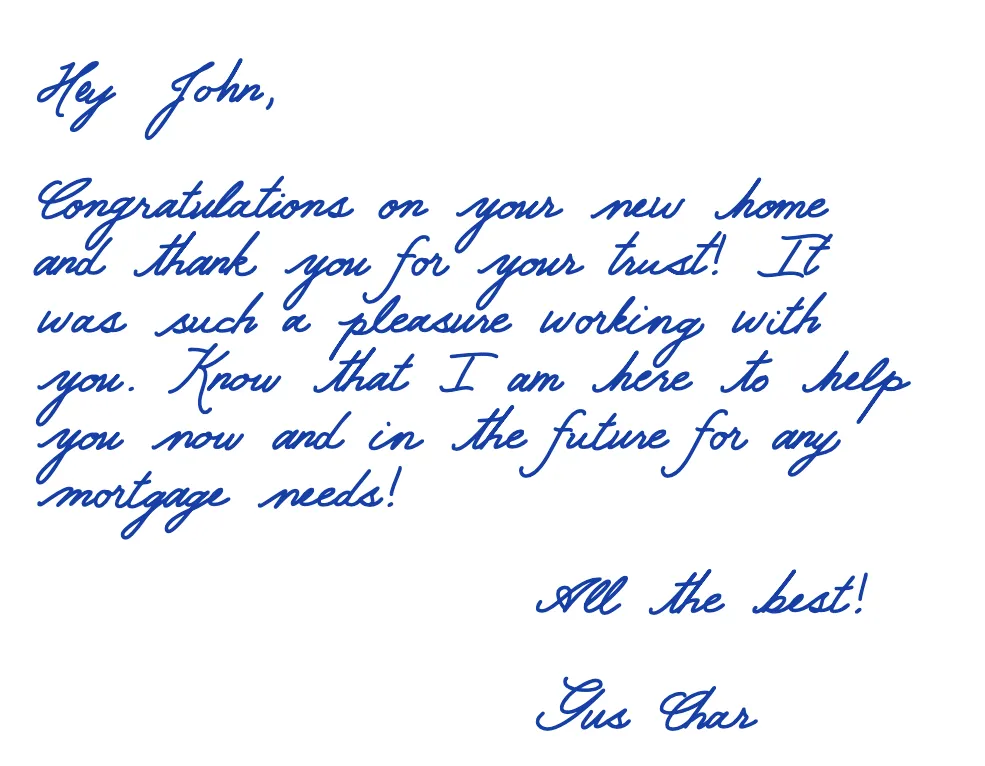 Hey John,
Congratulations on your new home
and thank you for your trust! It
was such a pleasure working with
you. Know that I am here to help
you now and in the future for any
mortgage needs!
All the best!
Gus Char